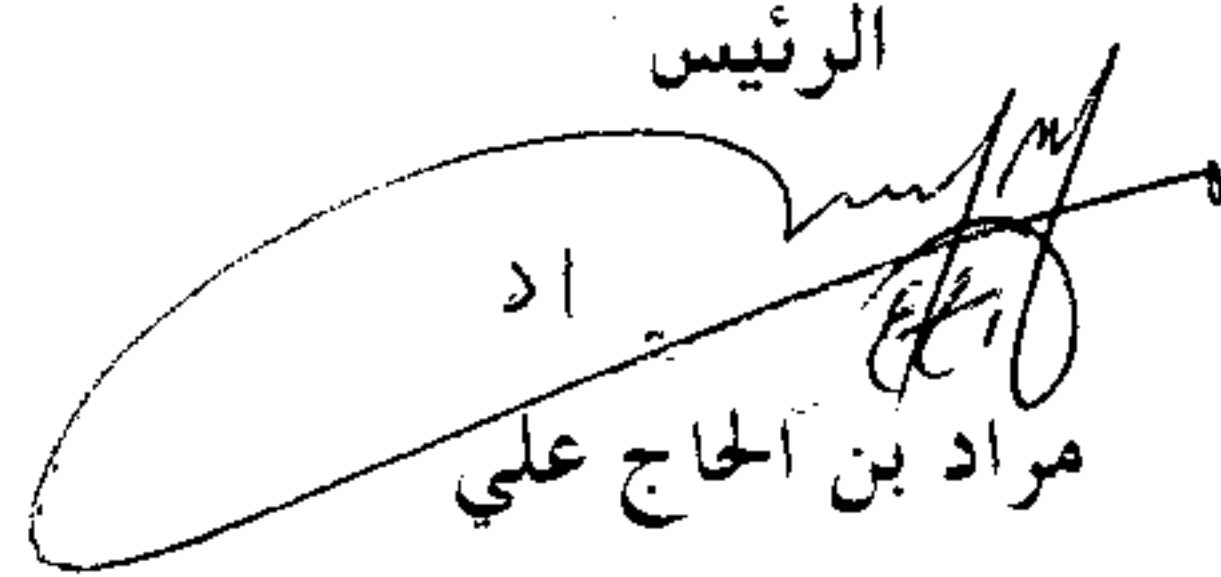 الرئيس
اد
مراد بن الحاج علي